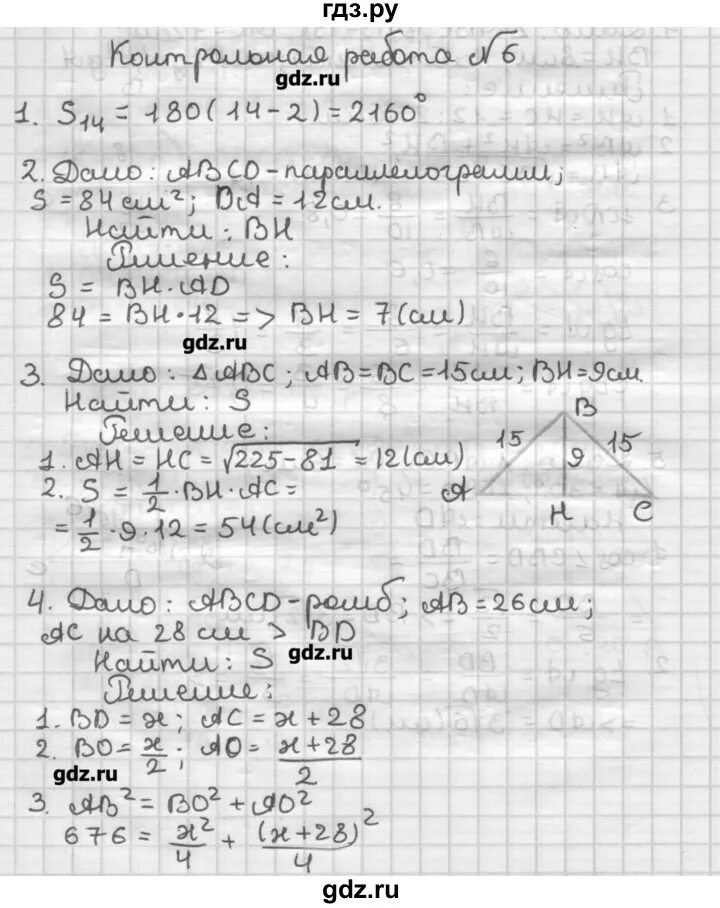 гдз.ру
Контрольная работа №6
gdz.ru
1. S₁₄ = 180(14-2) = 2160°
2. Дано: ABCD-параллелограмм;
S = 84 см²; DA = 12 см.
Найти: BH
Решение:
S = BH·AD
84 = BH·12 => BH = 7(см)
gdz.ru
3. Дано: △ABC; AB=BC=15см; BH=9см.
Найти: S
Решение:
1. AH = HC = √225-81 = 12(см)
2. S = 1/2·BH·AC =
= 1/2·9·12 = 54(см²)
B
15
15
9
A
H
C
4. Дано: ABCD-ромб; AB=26см;
AC на 28 см > BD
gdz.ru
Найти: S
Решение:
1. BD = x; AC = x+28
2. BO = x/2; AO = x+28/2
gdz.ru
3. AB² = BO² + AO²
676 = x²/4 + (x+28)²/4
gdz.ru